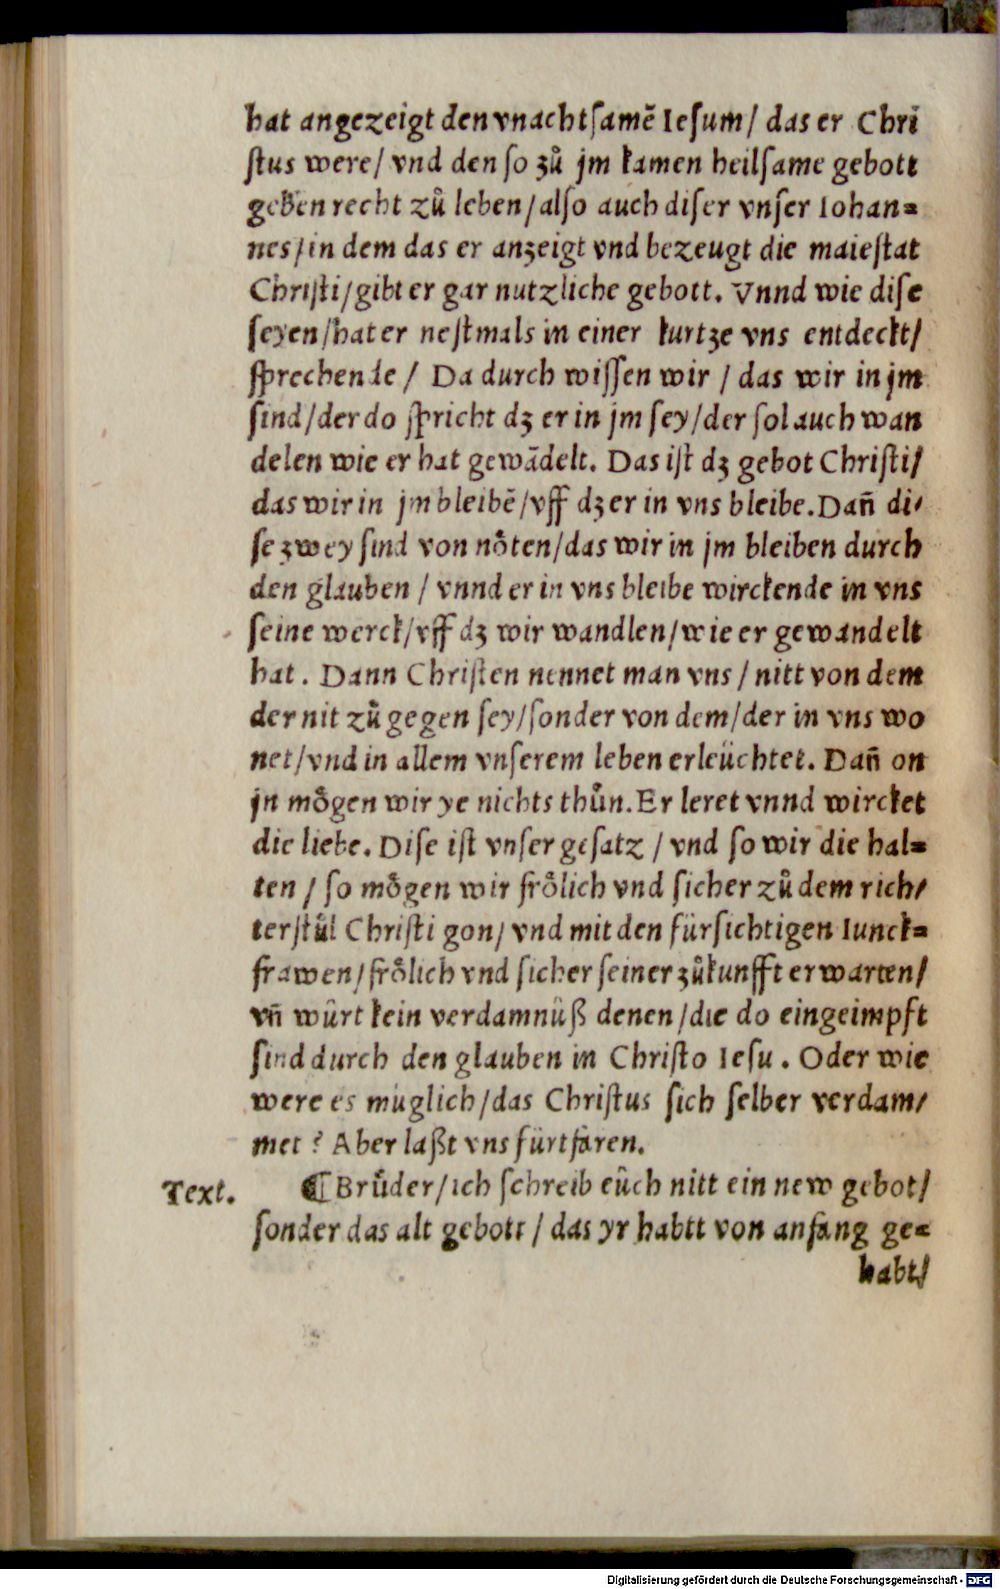 hat angezeigt den vnachtſamē Ieſum/ das er Chri
ſtus were/ vnd den ſo zů jm kamen heilſame gebott
geben recht zů leben/ alſo auch diſer vnſer Iohan=
nes/ in dem das er anzeigt vnd bezeugt die maieſtat
Chriſti/ gibt er gar nutzliche gebott. Vnnd wie diſe
ſeyen/ hat er neſtmals in einer kurtze vns entdeckt/
ſprechende/ Da durch wiſſen wir/ das wir in jm
ſind/ der do ſpricht dz er in jm ſey/ der ſol auch wan
delen wie er hat gewādelt. Das iſt dz gebot Chriſti/
das wir in jm bleibē/ vff dz er in vns bleibe. Dan̄ di/
ſe zwey ſind von noͤten/ das wir in jm bleiben durch
den glauben/ vnnd er in vns bleibe wirckende in vns
ſeine werck/ vff dz wir wandlen/ wie er gewandelt
hat. Dann Chriſten nennet man vns/ nitt von dem
der nit zů gegen ſey/ ſonder von dem/ der in vns wo
net/ vnd in allem vnſerem leben erleüchtet. Dan̄ on
jn moͤgen wir ye nichts thůn. Er leret vnnd wircket
die liebe. Diſe iſt vnſer geſatz/ vnd ſo wir die hal=
ten/ ſo moͤgen wir froͤlich vnd ſicher zů dem rich/
terſtůl Chriſti gon/ vnd mit den fürſichtigen Iunck=
frawen/ froͤlich vnd ſicher ſeiner zůkunfft erwarten/
vn̄ würt kein verdamnüß denen/ die do eingeimpft
ſind durch den glauben in Chriſto Ieſu. Oder wie
were es müglich/ das Chriſtus ſich ſelber verdam/
met? Aber laßt vns fürtfaren.
Text. ¶ Brůder/ ich ſchreib eüch nitt ein new gebot/
ſonder das alt gebott/ das yr habtt von anfang ge=
habt/
Digitalisierung gefördert durch die Deutsche Forschungsgemeinschaft - DFG